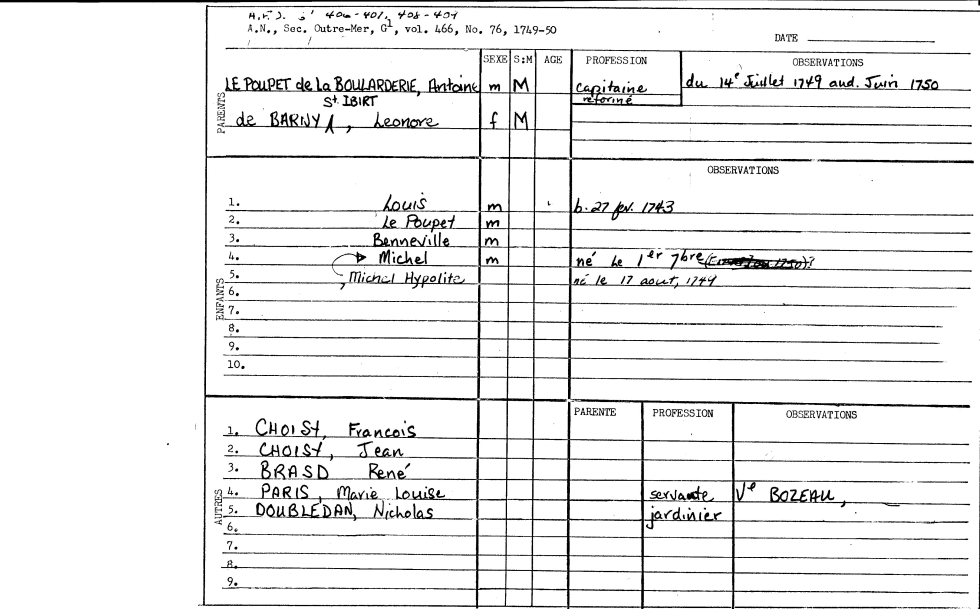 406-401, 408-409
A.N., Sec. Outre-Mer, G1, vol. 466, No. 76, 1749-50
DATE
SEXE S:M AGE PROFESSION OBSERVATIONS
PARENTS
LE POUPET de la BOULARDERIE, Antoine m M capitaine du 14e Juillet 1749 aud. Juin 1750
réformé
St. IBIRT
de BARNY, Leonore f M
OBSERVATIONS
ENFANTS
1. Louis m b. 27 fev. 1743
2. Le Poupet m
3. Benneville m
4. Michel m né le 1er 7bre
5. , Michel Hypolite né le 17 aout, 1749
6.
7.
8.
9.
10.
PARENTE PROFESSION OBSERVATIONS
AUTRES
1. CHOIST, Francois
2. CHOIST, Jean
3. BRASD René
4. PARIS, Marie Louise servante Ve BOZEAU,
5. DOUBLEDAN, Nicholas jardinier
6.
7.
8.
9.